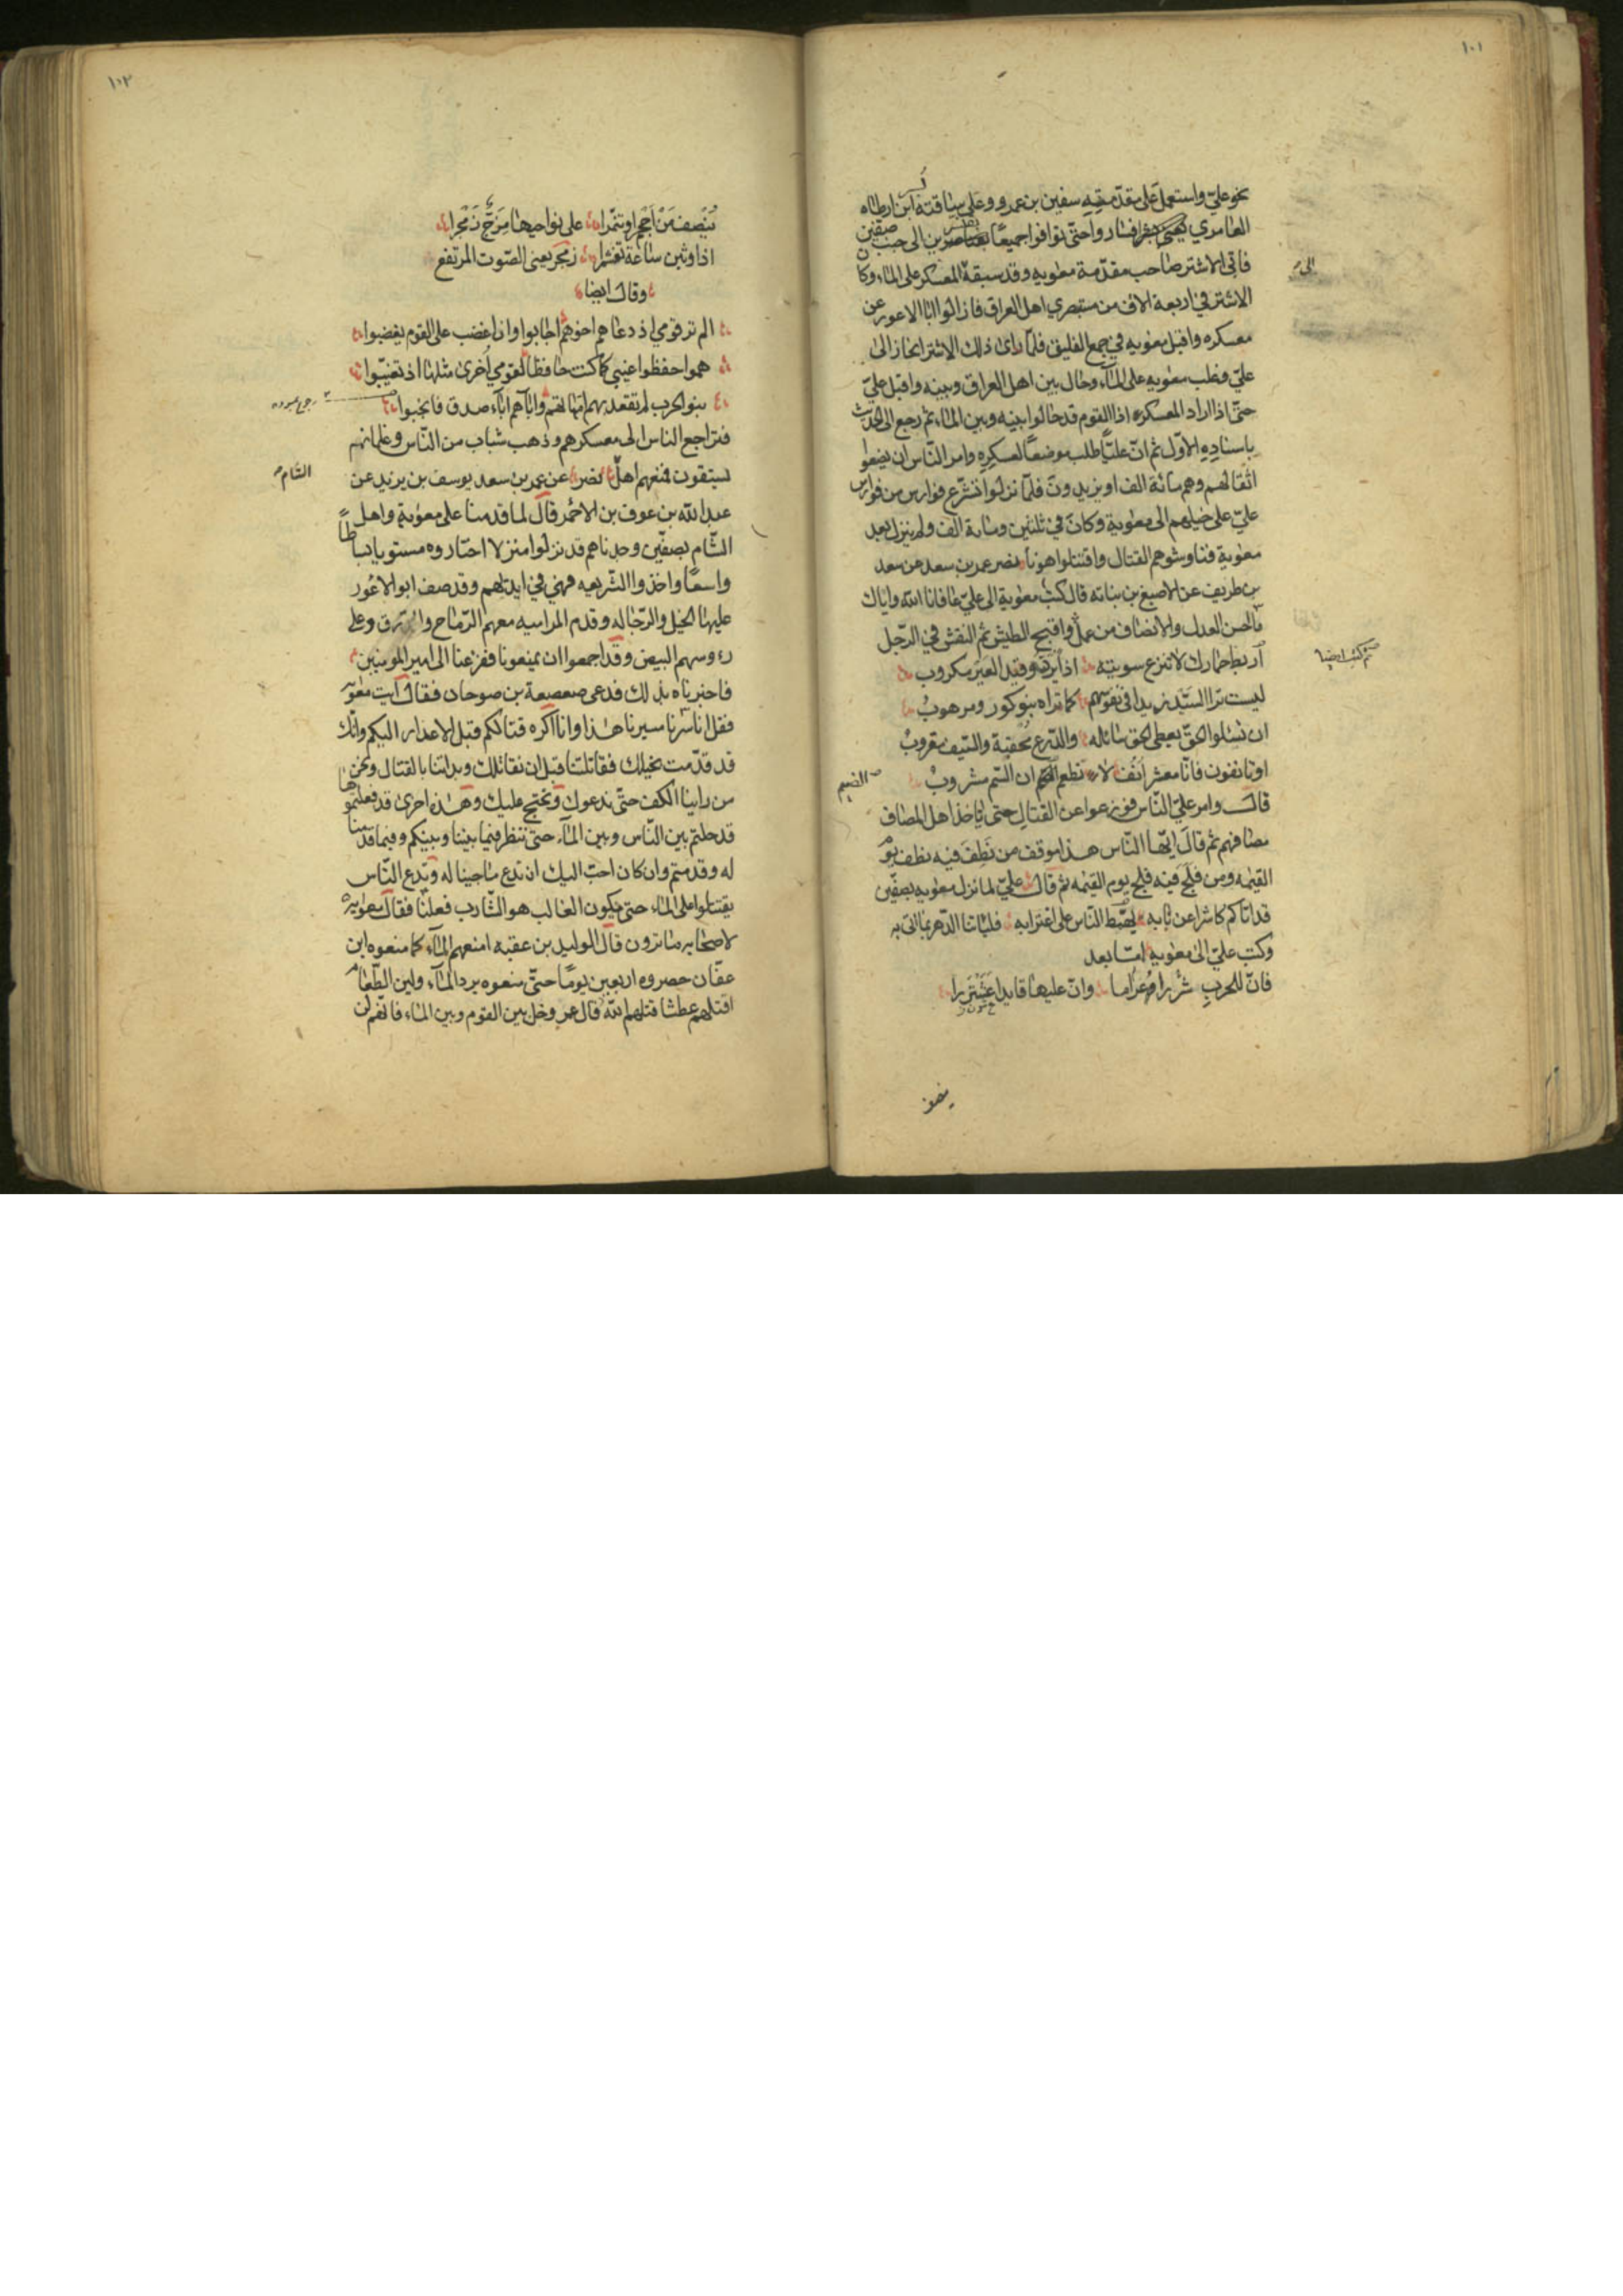 ١٠١
نحو علي واستعمل على مقدمته سفين بن عمرو وعلى ساقته ابن ارطاه
العامري فسار واحتى توافوا جميعًا الى جنب صفين
فاتى الاشتر صاحب مقدمة معويه وقد سبقه المعسكر على الماء وكان
الى
الاشتر في اربعة الاف من مستبصري اهل العراق فازالوا ابا الاعور عن
معسكره واقبل معويه في جمع الفليق فلما راى ذلك الاشتر انحاز الى
علي وغلب معويه على الماء وحال بين اهل العراق وبينه واقبل علي
حتى اذا اراد المعسكر اذا القوم قد حالوا بينه وبين الماء ثم رجع الى الحديث
باسناده الاول ثم ان عليًا طلب موضعًا لعسكره وامر الناس ان يضعوا
اثقالهم وهم مائة الف او يزيدون فلما نزلوا تسرع فوارس من فوارس
علي على خيلهم الى معوية وكان في ثلثين ومائة الف ولم ينزل بعد
معوية فناوشوهم القتال واقتتلوا هونا نصر عمر بن سعد عن سعد
بن طريف عن الاصبغ بن نباته قال كتب معوية الى علي عافانا الله واياك
ما احسن العدل والانصاف من عمل واقبح الطيش ثم النفش في الرجل
ثم كتب ايضا
اربط حمارك لا تنزع سويته اذا يرد وقيد العير مكروب
ليست ترا السيد زيدا في نفوسهم كما تراه بنو كوز ومرهوب
ان تسئلوا الحق يعطى الحق سائله والدرع محقبة والسيف مقروب
او تانفون فانا معشر انف لا نطعم ان السم مشروب
الضيم
قال وامر علي الناس فوزعوا عن القتال حتى ياخذ اهل المصاف
مصافهم ثم قال ايها الناس هذا موقف من نطف فيه نطف يوم
القيمه ومن فلج فيه فلج يوم القيمه ثم قال علي لما نزل معويه بصفين
قد اتاكم كاشرا عن نابه يهمط الناس على اغترابه فليأتنا الدهر بما اتى به
وكتب علي الى معويه اما بعد
فان للحرب عراما شررا وان عليها قايدا عشنزرا
ينصف
١٠٢
ينصف من اجحر او تنمرا على نواحيها مزجا زمجرا
اذا ونين ساعة تغشمرا زمجر يعني الصوت المرتفع
وقال ايضا
الم تر قومي اذ دعاهم اخوهم اجابوا وان اغضب على القوم يغضبوا
هموا حفظوا غيبي كما كنت حافظا لقومي اخرى مثلها اذ تغيبوا
بنو الحرب لم تقعد بهم امهاتهم وابآهم ابآء صدق فانجبوا
فتراجع الناس الى معسكرهم وذهب شباب من الناس وغلمانهم
يستقون فمنعهم اهل نصر عن عمر بن سعد يوسف بن يزيد عن
الشام
عبد الله بن عوف بن الاحمر قال لما قدمنا على معوية واهل
الشام بصفين وجدناهم قد نزلوا منزلا اختاروه مستويا بساطًا
واسعًا واخذوا الشريعه فهي في ايديهم وقد صف ابو الاعور
عليها الخيل والرجاله وقدم المراميه معهم الرماح والدرق وعلى
رءوسهم البيض وقد اجمعوا ان يمنعونا ففزعنا الى امير المومنين
فاخبرناه بذلك فدعى صعصعة بن صوحان فقال ايت معويه
فقل انا سرنا مسيرنا هذا وانا اكره قتالكم قبل الاعذار اليكم وانك
قد قدمت بخيلك فقاتلتنا قبل ان نقاتلك وبداتنا بالقتال ونحن
من راينا الكف حتى ندعوك ونحتج عليك وهذه اخرى قد فعلتموها
قد حلتم بين الناس وبين الماء حتى ننظر فيما بيننا وبينكم وفيما قدمنا
له وقدمتم وان كان احب اليك ان ندع ما جينا له وندع الناس
يقتتلوا على الماء حتى يكون الغالب هو الشارب فعلنا فقال معويه
لاصحابه ما ترون قال الوليد بن عقبه امنعهم الماء كما منعوه ابن
عفان حصروه اربعين يومًا حتى منعوه برد الماء ولين الطعام
اقتلهم عطشا قتلهم الله قال عمر وخل بين القوم وبين الماء فانهم لن